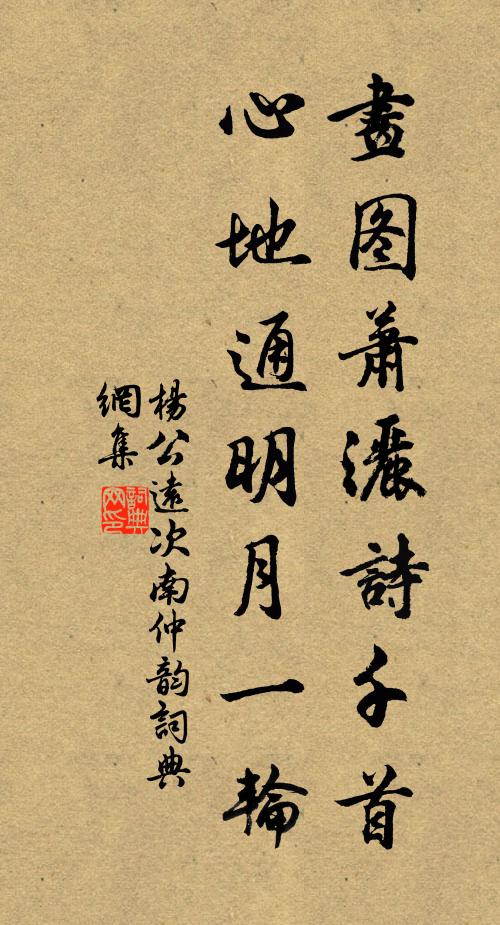 畫图蕭灑詩千首
心地通明月一輪
楊公遠次南仲韵詞典
網集
詞典网印